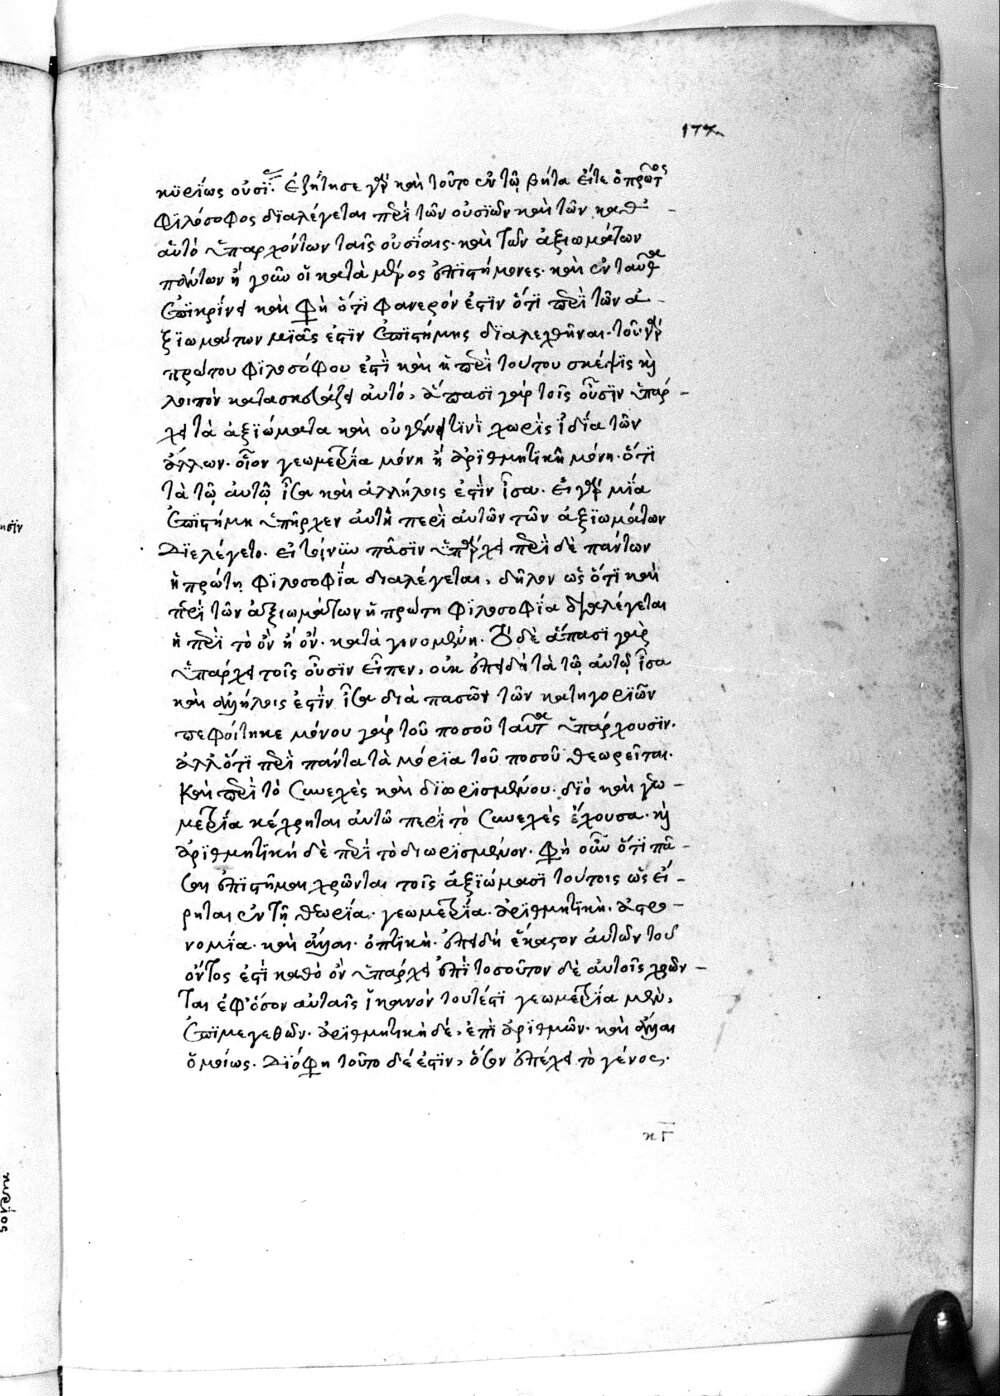 177
κυρίως οὐσί. ἐζήτησε γὰρ καὶ τοῦτο ἐν τῷ βῆτα εἴτε ὁ πρῶτος
φιλόσοφος διαλέγεται περὶ τῶν οὐσιῶν καὶ τῶν καθ
αὐτὸ ὑπαρχόντων ταῖς οὐσίαις. καὶ τῶν ἀξιωμάτων
πάντων ἢ γοῦν οἱ κατὰ μέρος ἐπιστήμονες. καὶ ἐνταῦθα
ἐπικρίνει καὶ φησὶ ὅτι φανερόν ἐστιν ὅτι περὶ τῶν ἀ-
ξιωμάτων μιᾶς ἐστὶν ἐπιστήμης διαλεχθῆναι. τοῦ γὰρ
πρώτου φιλοσόφου ἐστὶ καὶ ἡ περὶ τούτου σκέψις καὶ
λοιπὸν κατασκευάζει αὐτό, ἅπασι γὰρ τοῖς οὖσιν ὑπάρ-
χει τὰ ἀξιώματα καὶ οὐ γένει τινὶ χωρὶς ἰδίᾳ τῶν
ἄλλων. οἷον γεωμετρία μόνη ἢ ἀριθμητικῆ μόνη. ὅτι
τὰ τῷ αὐτῷ ἴσα καὶ ἀλλήλοις ἐστὶν ἴσα. εἰ γὰρ μία
ἐπιστήμη ὑπῆρχεν αὐτὴ περὶ αὐτῶν τῶν ἀξιωμάτων
διελέγετο. εἰ τοίνυν πᾶσιν ὑπάρχει περὶ δὲ πάντων
ἡ πρώτη φιλοσοφία διαλέγεται, δῆλον ὡς ὅτι καὶ
περὶ τῶν ἀξιωμάτων ἡ πρώτη φιλοσοφία διαλέγεται
ἡ περὶ τὸ ὂν ᾗ ὄν. καταγινομένη. τὸ δὲ ἅπασι γὰρ
ὑπάρχει τοῖς οὖσιν εἶπεν, οὐκ ἐπειδὴ τὰ τῷ αὐτῷ ἴσα
καὶ ἀλλήλοις ἐστὶν ἴσα διὰ πασῶν τῶν κατηγοριῶν
πεφοίτηκε μόνου γὰρ τοῦ ποσοῦ ταῦτα ὑπάρχουσιν.
ἀλλ ὅτι περὶ πάντα τὰ μόρια τοῦ ποσοῦ θεωρεῖται.
καὶ περὶ τὸ συνεχὲς καὶ διωρισμένου. διὸ καὶ γεω-
μετρία κέχρηται αὐτῶ περὶ τὸ συνεχὲς ἔχουσα. καὶ
ἀριθμητικὴ δὲ περὶ τὸ διωρισμένον. φησὶ οὖν ὅτι πᾶ-
σαι ἐπιστῆμαι χρῶνται τοῖς ἀξιώμασι τούτοις ὡς εἴ-
ρηται ἐν τῇ θεωρίᾳ. γεωμετρία. ἀριθμητικὴ. ἀστρο-
νομία. καὶ ἄλλαι. ὀπτικὴ. ἐπειδὴ ἕκαστον αὐτῶν τοῦ
ὄντος ἐστὶ καθὸ ὂν ὑπάρχει ἐπὶ τοσοῦτον δὲ αὐτοῖς χρῶν-
ται ἐφ' ὅσον αὐταῖς ἱκανὸν τουτέστι γεωμετρία μὲν,
ἐπὶ μεγεθῶν. ἀριθμητικὴ δέ, ἐπὶ ἀριθμῶν. καὶ ἄλλαι
ὁμοίως. διό φησι τοῦτο δέ ἐστιν, ὅσον ἐπέχει τὸ γένος.
κγ